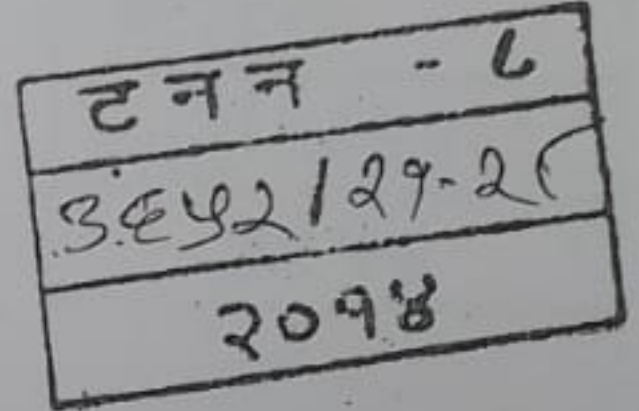 ट न न - ८
३६५२ / २१-२८
२०१४